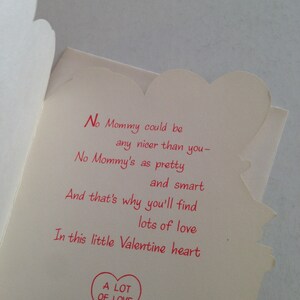 No Mommy could be
any nicer than you-
No Mommy's as pretty
and smart
And that's why you'll find
lots of love
In this little Valentine heart
A LOT
OF LOVE